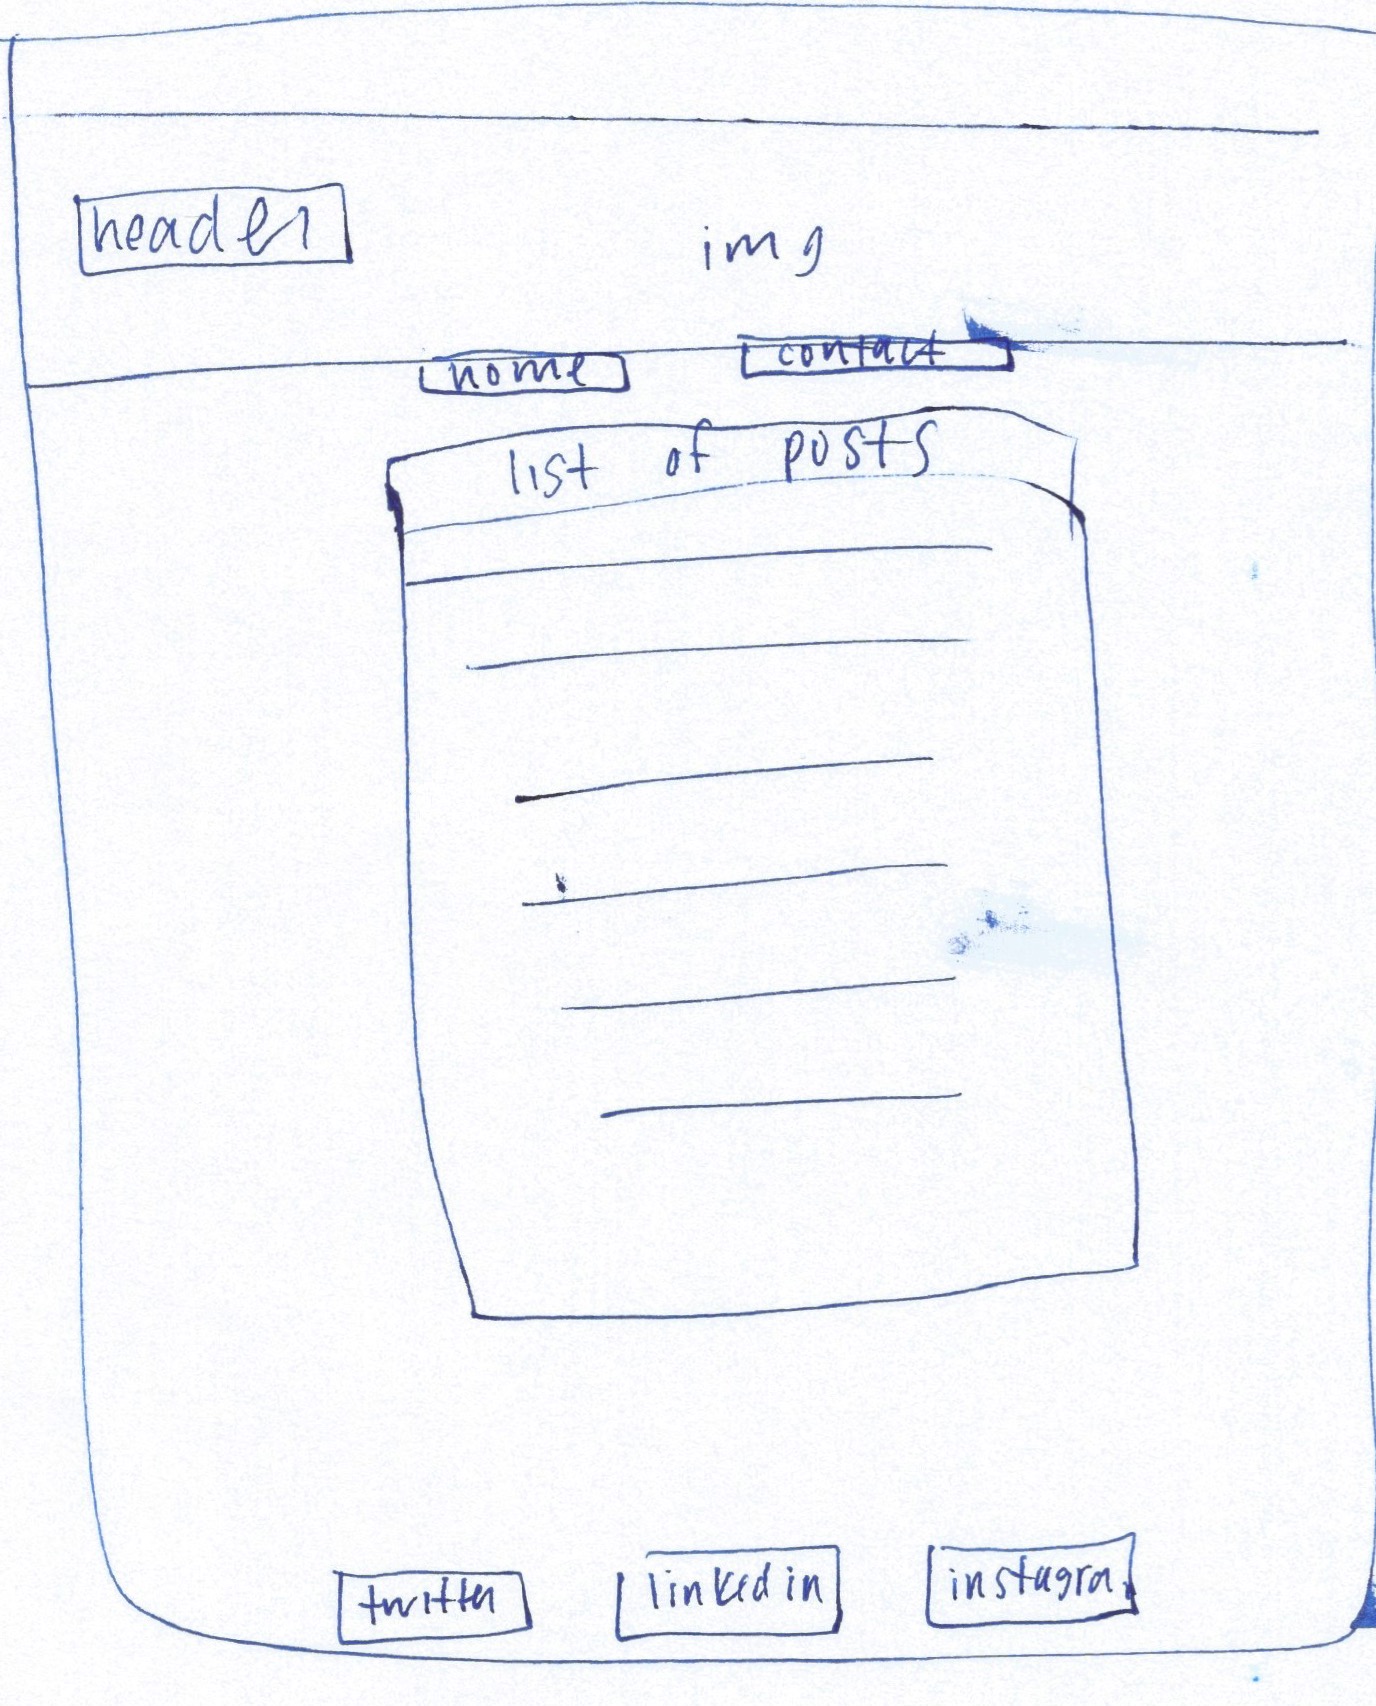 header
img
home
contact
list of posts
twitter
linkedin
instagra